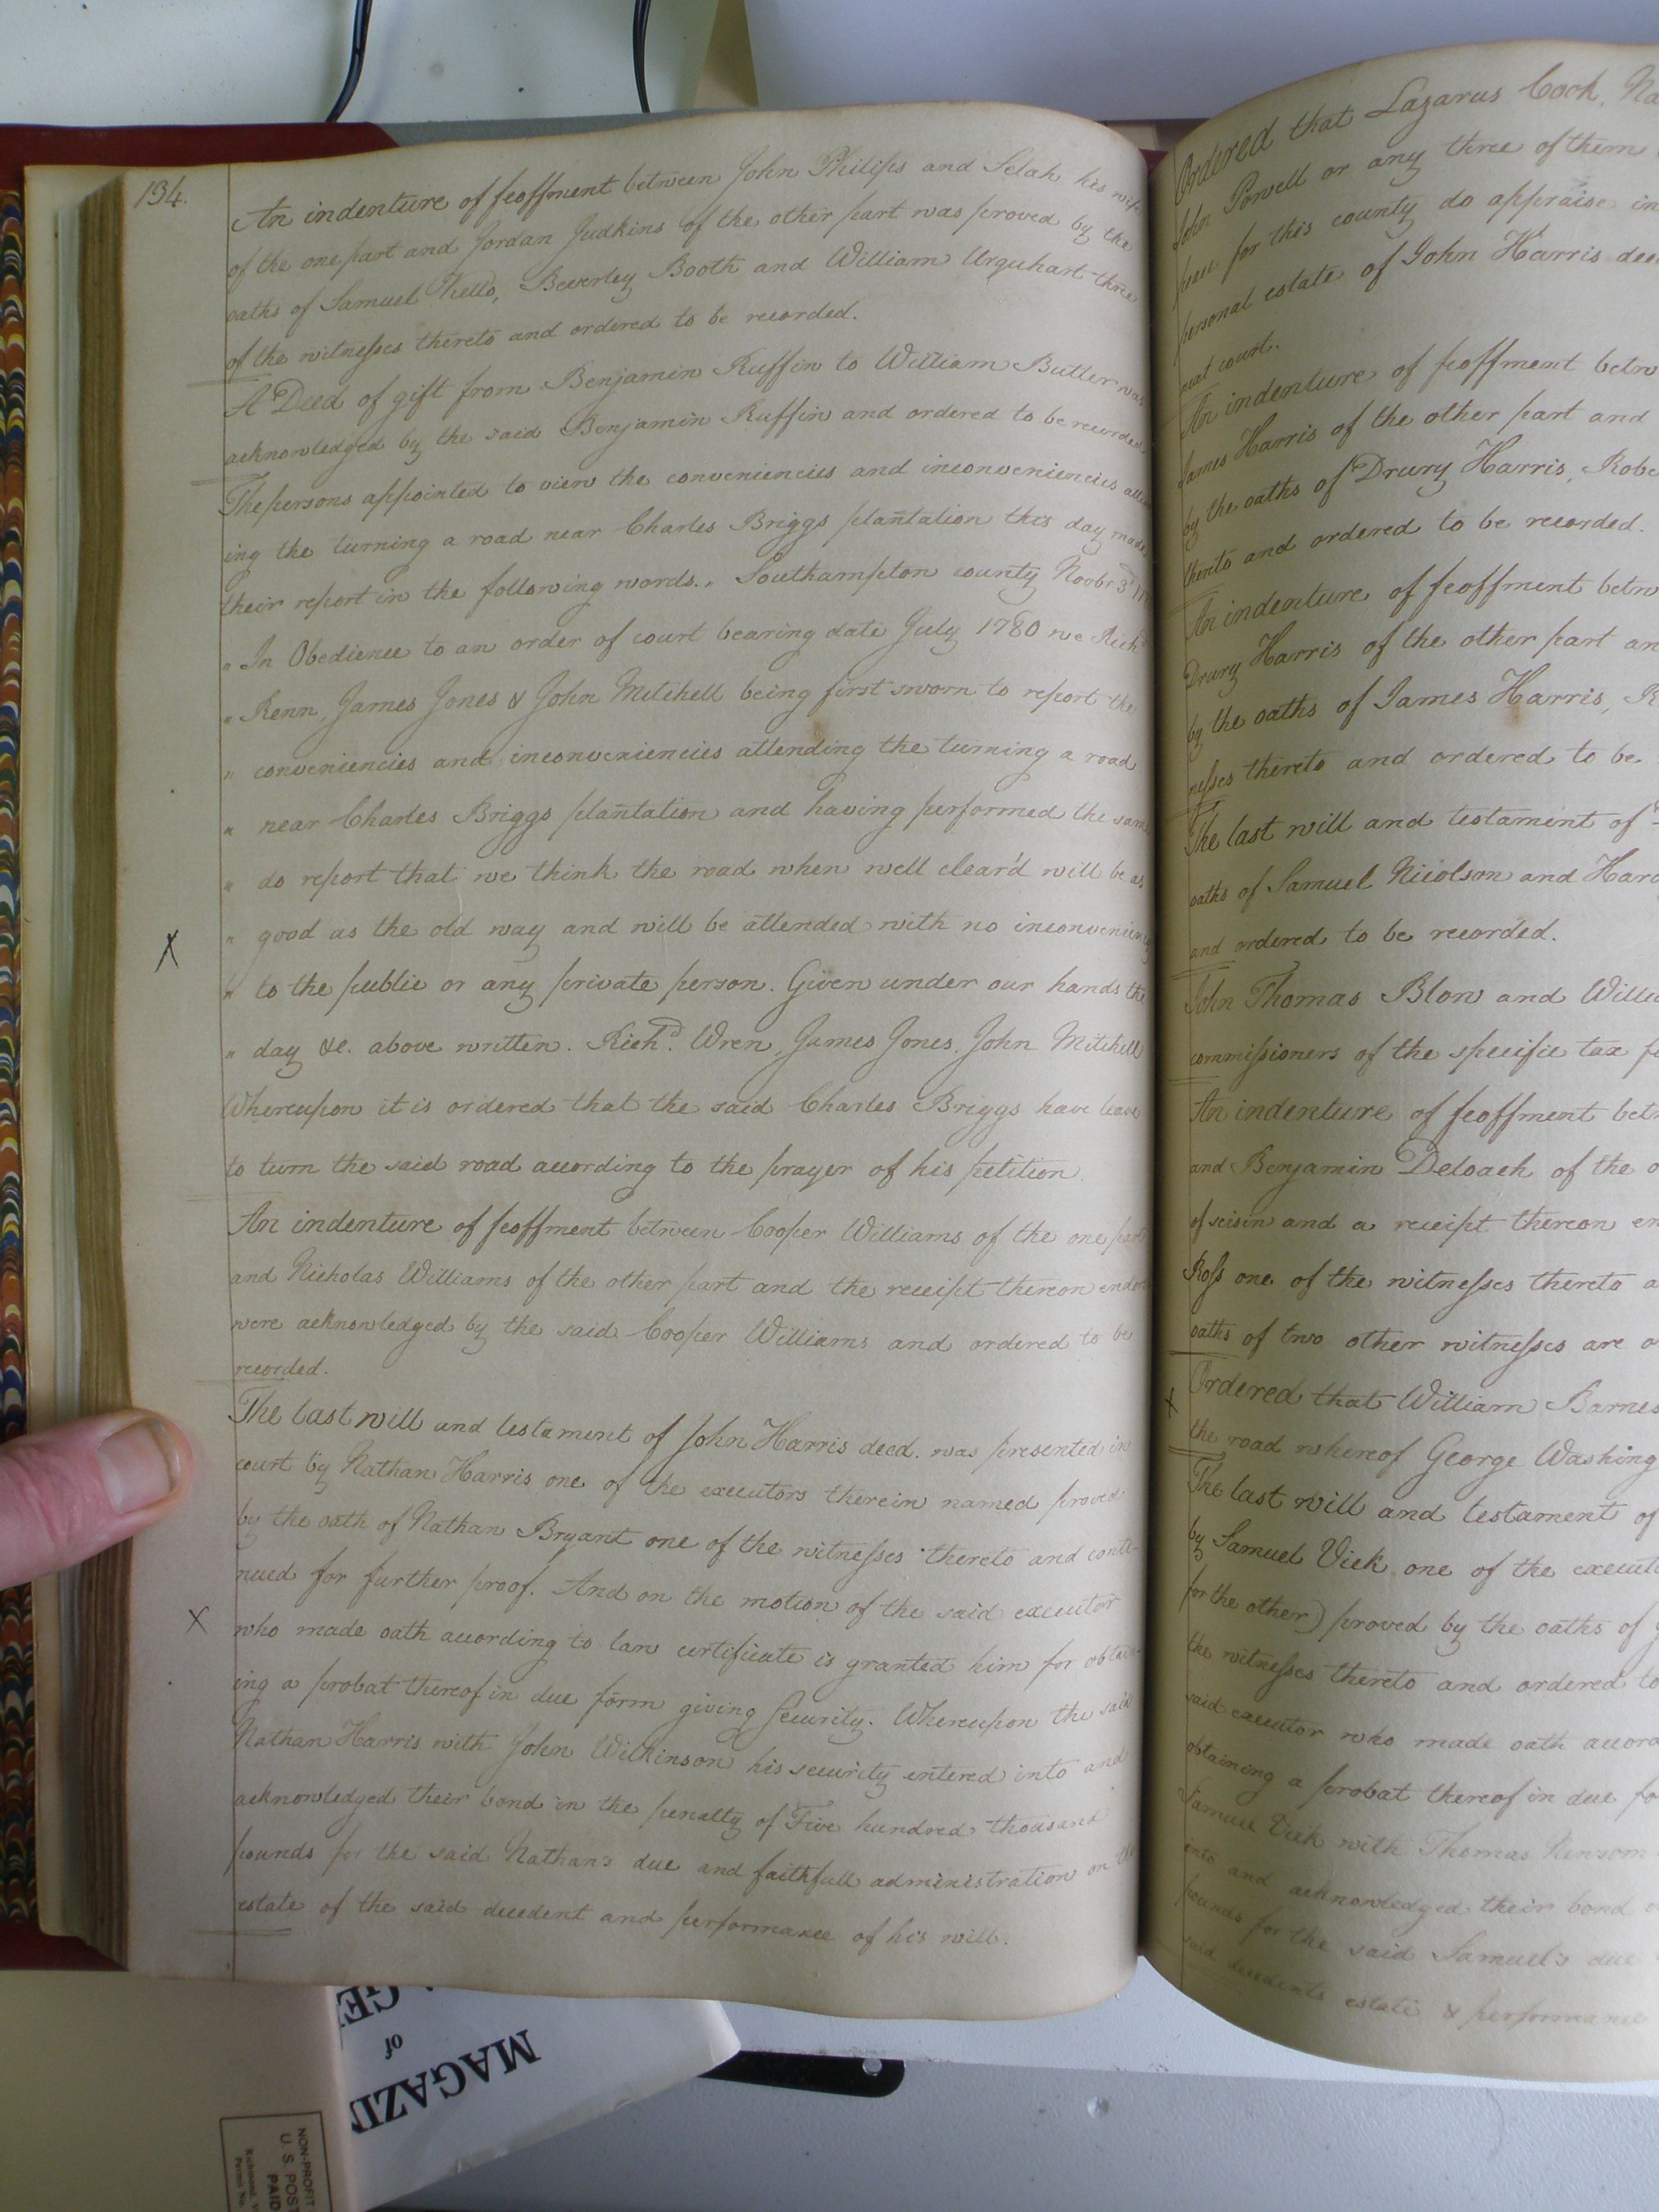 134.
An indenture of feoffment between John Philips and Selah his wife
of the one part and Jordan Judkins of the other part was proved by the
oaths of Samuel Kello, Beverley Booth and William Urquhart three
of the witnesses thereto and ordered to be recorded.
A Deed of gift from Benjamin Ruffin to William Butler was
acknowledged by the said Benjamin Ruffin and ordered to be recorded
The persons appointed to view the conveniencies and inconveniencies
ing the turning a road near Charles Briggs plantation this day made
their report in the following words. „ Southampton county Novbr 3d
„ In Obedience to an order of court bearing date July 1780 we Richd
„ Renn, James Jones & John Mitchell being first sworn to report the
„ conveniencies and inconveniencies attending the turning a road
„ near Charles Briggs plantation and having performed the same
„ do report that we think the road when well clear'd will be as
„ good as the old way and will be attended with no inconveniency
X
„ to the public or any private person. Given under our hands the
„ day &c. above written. Richd. Wren, James Jones. John Mitchell
Whereupon it is ordered that the said Charles Briggs have leave
to turn the said road according to the prayer of his petition.
An indenture of feoffment between Cooper Williams of the one part
and Nicholas Williams of the other part and the receipt thereon
were acknowledged by the said Cooper Williams and ordered to be
recorded.
The last will and testament of John Harris decd. was presented in
court by Nathan Harris one of the executors therein named proved
by the oath of Nathan Bryant one of the witnesses thereto and conti-
nued for further proof. And on the motion of the said executor
X
who made oath according to law certificate is granted him for obtain-
ing a probat thereof in due form giving security. Whereupon the said
Nathan Harris with John Wilkinson his security entered into and
acknowledged their bond in the penalty of Five hundred thousand
pounds for the said Nathan's due and faithfull administration on the
estate of the said decedent and performance of his will.
Ordered that Lazarus Cook, Na
John Powell or any three of them
for this county do appraise in
personal estate of John Harris dec
next court.
An indenture of feoffment betw
James Harris of the other part and
by the oaths of Drury Harris, Robe
thereto and ordered to be recorded.
An indenture of feoffment betw
Drury Harris of the other part an
by the oaths of James Harris, R
nesses thereto and ordered to be
The last will and testament of
oaths of Samuel Nicolson and Har
and ordered to be recorded.
John Thomas Blow and Willi
commissioners of the specific tax f
An indenture of feoffment bet
and Benjamin Deloach of the o
of seisin and a receipt thereon en
Ross one of the witnesses thereto a
oaths of two other witnesses are o
X
Ordered that William Barnes
the road whereof George Washing
The last will and testament of
by Samuel Vick one of the execut
for the other) proved by the oaths of
the witnesses thereto and ordered to
said executor who made oath accord
obtaining a probat thereof in due fo
Samuel Vick with Thomas Newsom
into and acknowledged their bond
pounds for the said Samuel's due
said decedents estate & performance
MAGAZI
of
GE
NON-PROFIT
U. S. POST
PAID
Richmond, V
Permit No.